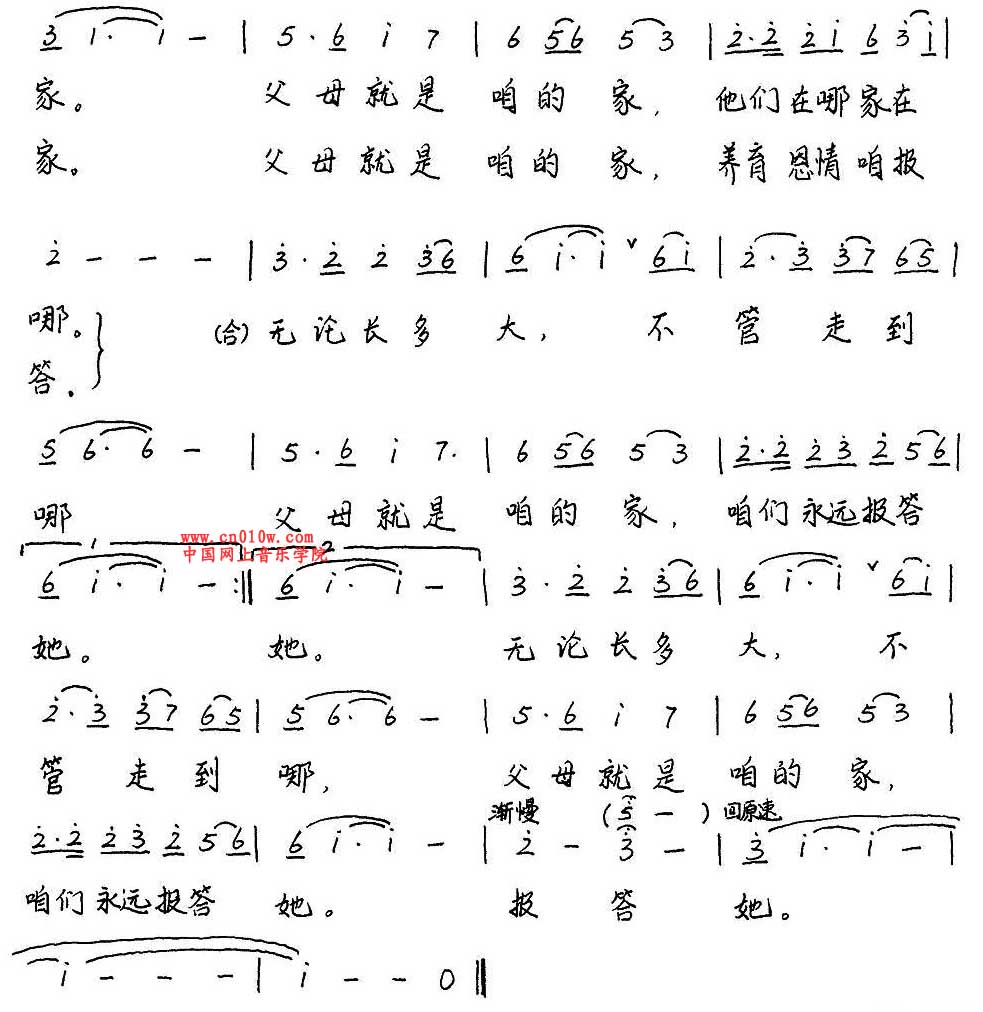 3 i · i – | 5 · 6 i 7 | 6 56 5 3 | 2·2 2i 6 3 i |
家。 父母就是 咱的家, 他们在哪家在
家。 父母就是 咱的家, 养育恩情咱报
2 – – – | 3 · 2 2 36 | 6 i · i ∨ 6i | 2 · 3 37 65 |
哪。 (合)无论长多 大, 不 管走到
答.
5 6 · 6 – | 5 · 6 i 7. | 6 56 5 3 | 2·2 23 2 56 |
哪 父母就是 咱的家, 咱们永远报答
www.cn010w.com
中国网上音乐学院
1 2
6 i · i – :‖ 6 i · i – | 3 · 2 2 36 | 6 i · i ∨ 6i |
她。 她。 无论长多 大, 不
2 · 3 37 65 | 5 6 · 6 – | 5 · 6 i 7 | 6 56 5 3 |
管走到 哪, 父母就是 咱的家,
渐慢 (5 – ) 回原速
2·2 23 2 56 | 6 i · i – | 2 – 3 – | 3 i · i – |
咱们永远报答 她。 报答 她。
i – – – | i – – 0 ‖